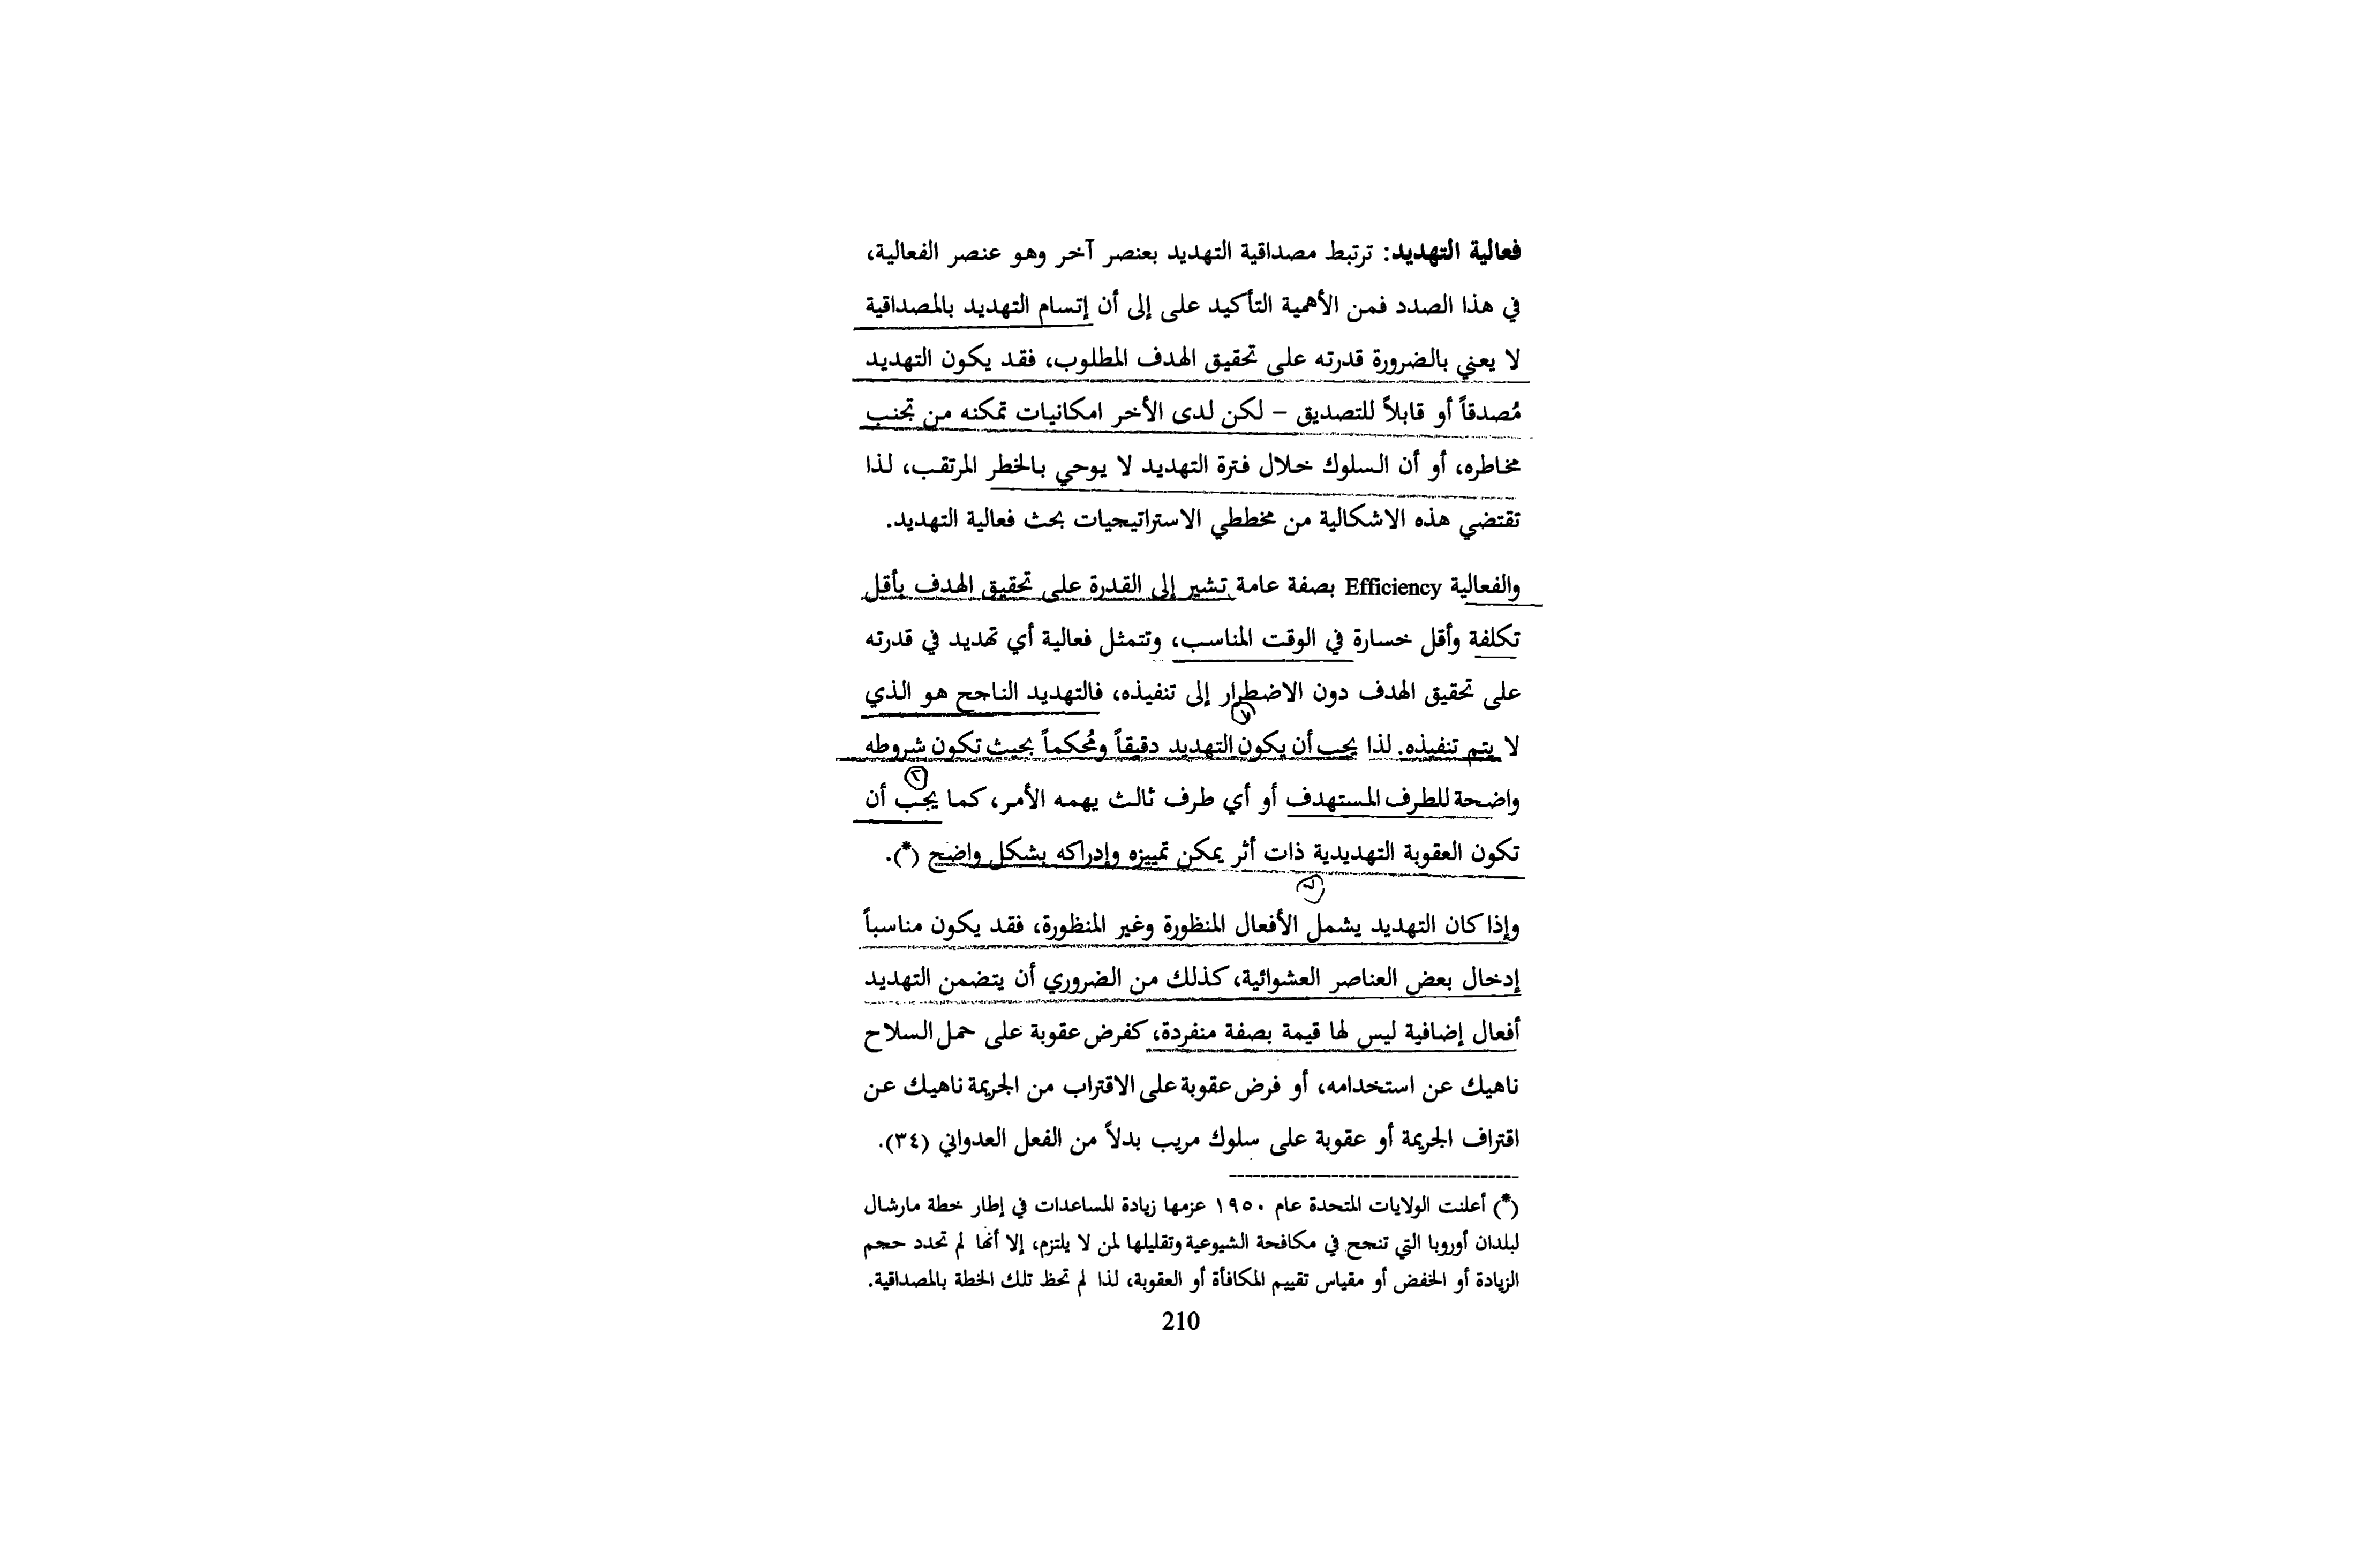 فعالية التهديد: ترتبط مصداقية التهديد بعنصر آخر وهو عنصر الفعالية،
في هذا الصدد فمن الأهمية التأكيد على إلى أن إتسام التهديد بالمصداقية
لا يعني بالضرورة قدرته على تحقيق الهدف المطلوب، فقد يكون التهديد
مُصدقاً أو قابلاً للتصديق – لكن لدى الأخر امكانيات تمكنه من تجنب
مخاطره، أو أن السلوك خلال فترة التهديد لا يوحي بالخطر المرتقب، لذا
تقتضي هذه الاشكالية من مخططي الاستراتيجيات بحث فعالية التهديد.
والفعالية Efficiency بصفة عامة تشير إلى القدرة على تحقيق الهدف بأقل
تكلفة وأقل خسارة في الوقت المناسب، وتتمثل فعالية أي تهديد في قدرته
على تحقيق الهدف دون الاضطرار إلى تنفيذه، فالتهديد الناجح هو الذي
١
لا يتم تنفيذه. لذا يجب أن يكون التهديد دقيقاً ومُحكماً بحيث تكون شروطه
٢
واضحة للطرف المستهدف أو أي طرف ثالث يهمه الأمر، كما يجب أن
تكون العقوبة التهديدية ذات أثر يمكن تمييزه وإدراكه بشكل واضح (*).
وإذا كان التهديد يشمل الأفعال المنظورة وغير المنظورة، فقد يكون مناسباً
إدخال بعض العناصر العشوائية، كذلك من الضروري أن يتضمن التهديد
أفعال إضافية ليس لها قيمة بصفة منفردة، كفرض عقوبة على حمل السلاح
ناهيك عن استخدامه، أو فرض عقوبة على الاقتراب من الجريمة ناهيك عن
اقتراف الجريمة أو عقوبة على سلوك مريب بدلاً من الفعل العدواني (٣٤).
(*) أعلنت الولايات المتحدة عام ١٩٥٠ عزمها زيادة المساعدات في إطار خطة مارشال
لبلدان أوروبا التي تنجح في مكافحة الشيوعية وتقليلها لمن لا يلتزم، إلا أنها لم تحدد حجم
الزيادة أو الخفض أو مقياس تقييم المكافأة أو العقوبة، لذا لم تحظ تلك الخطة بالمصداقية.
210